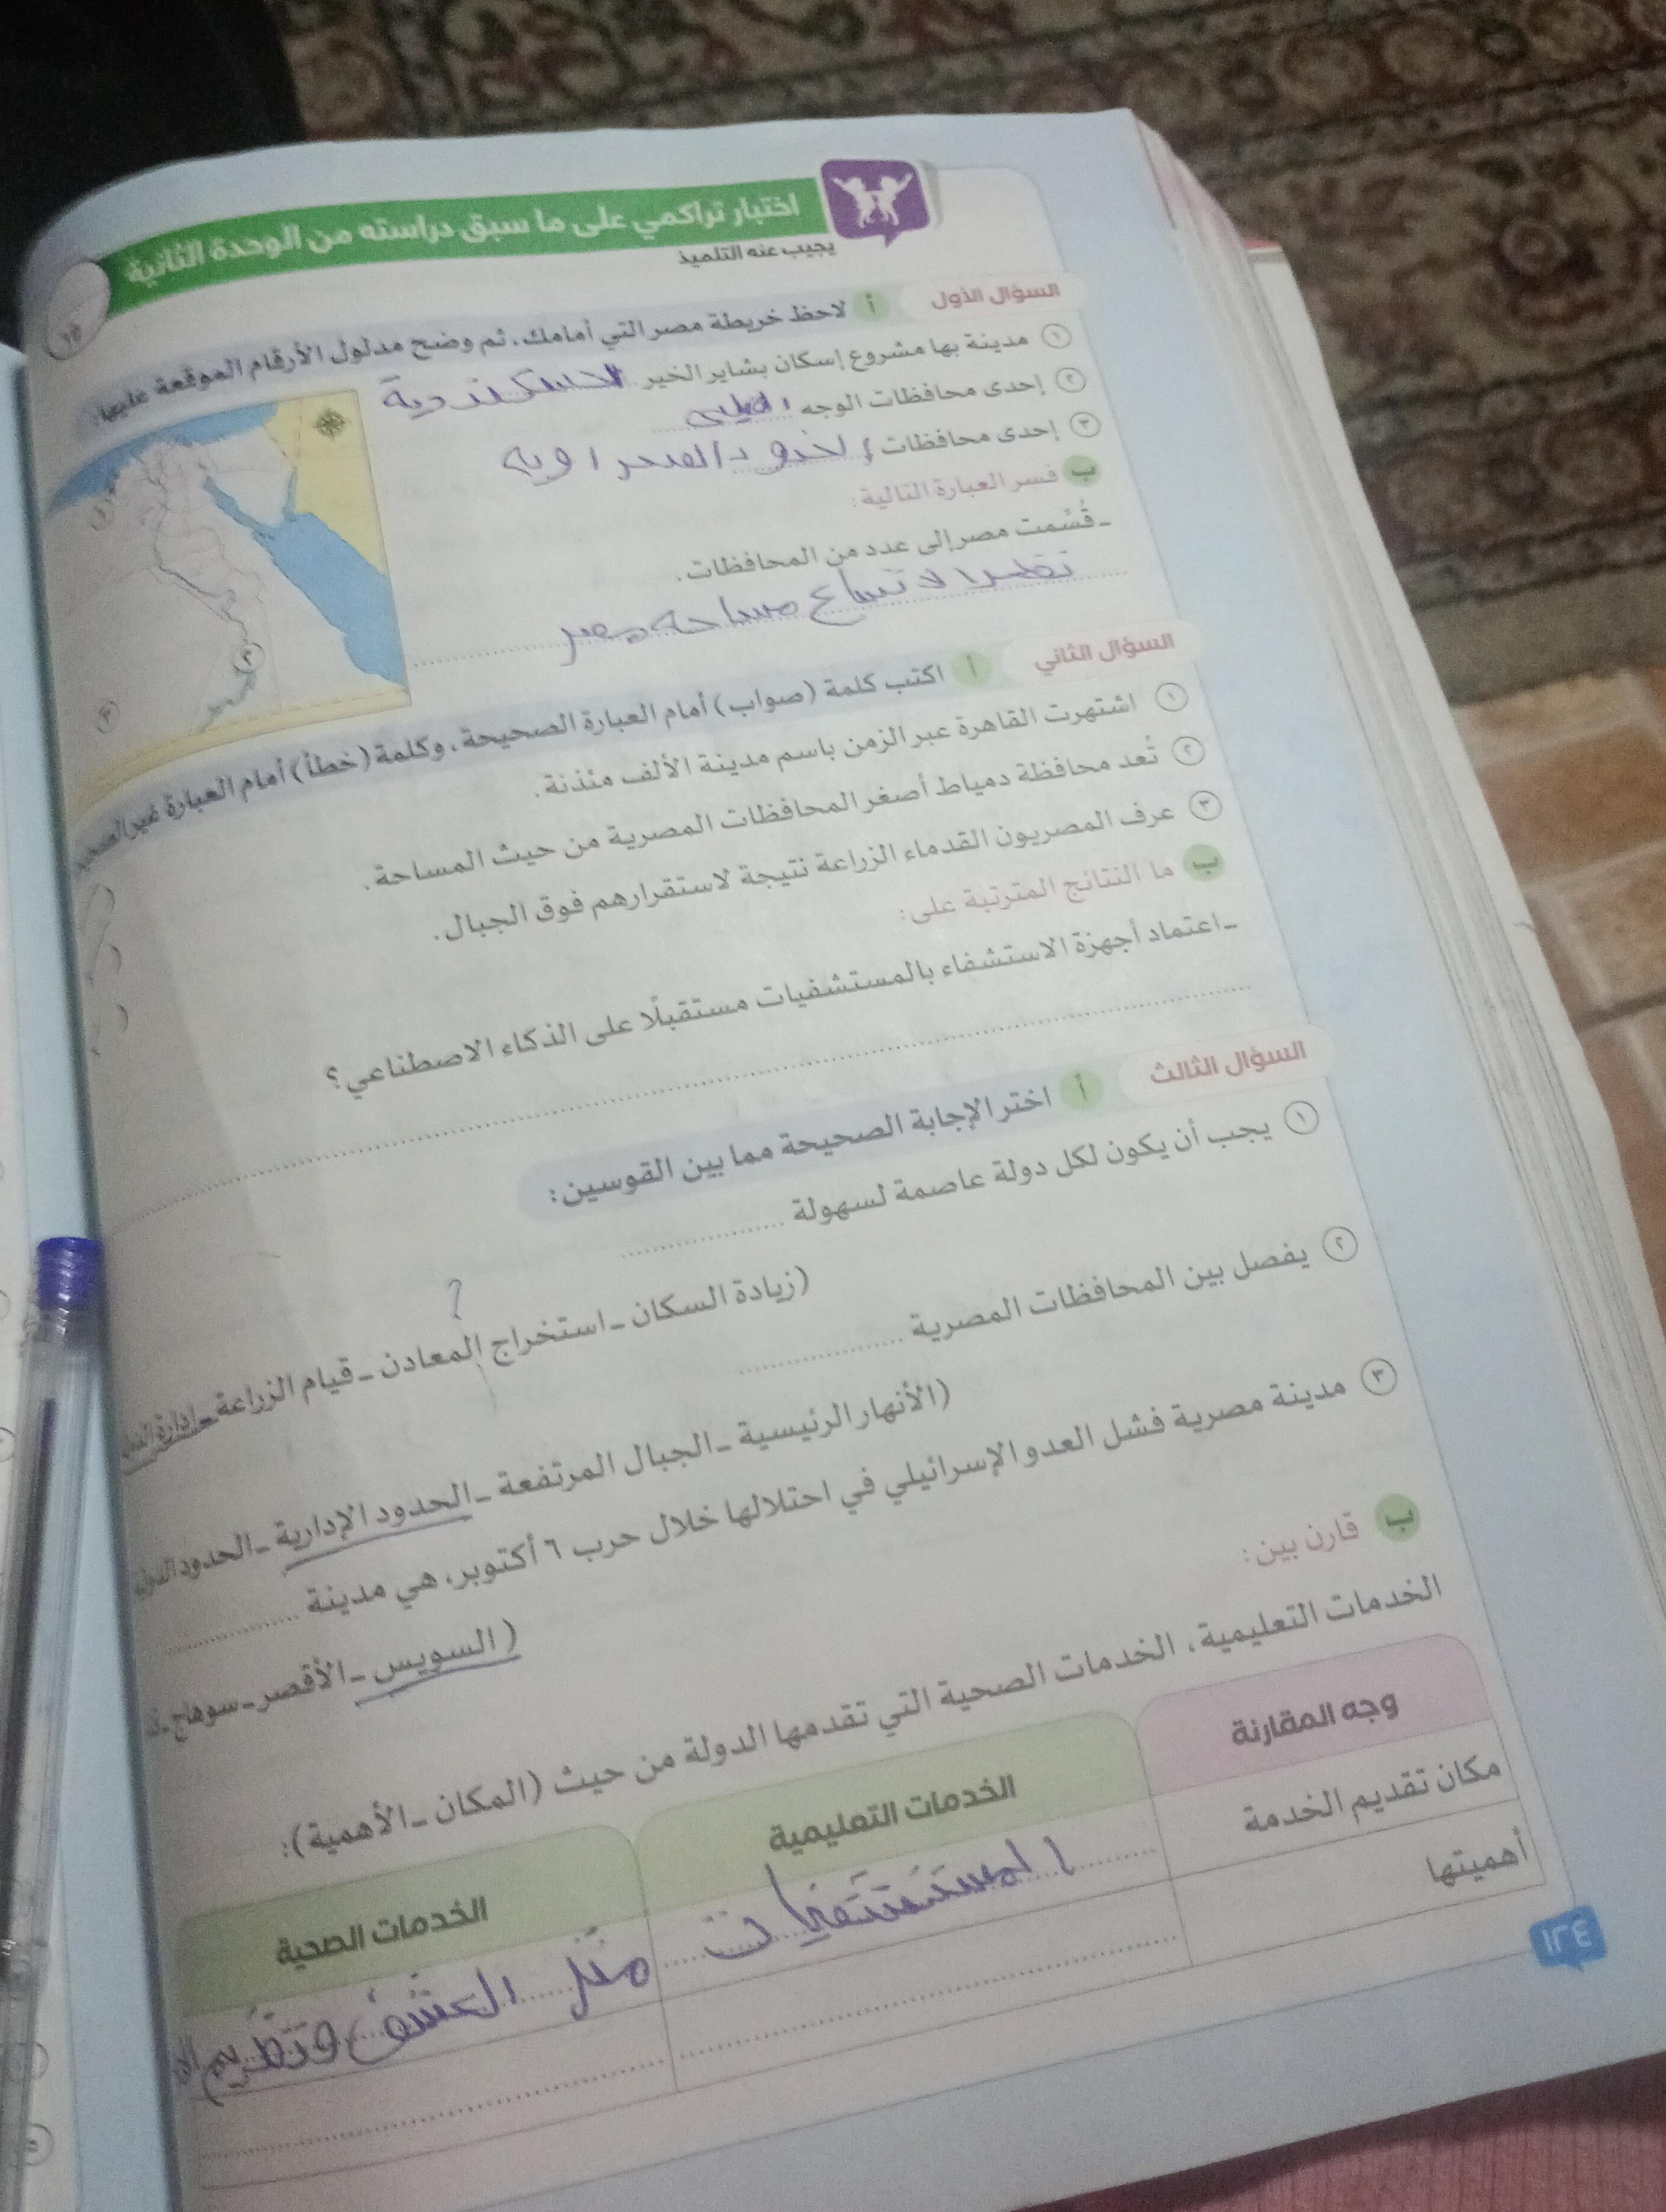 اختبار تراكمي على ما سبق دراسته من الوحدة الثانية
يجيب عنه التلميذ
١٥
السؤال الأول
أ لاحظ خريطة مصر التي أمامك، ثم وضح مدلول الأرقام الموقعة عليها:
١ مدينة بها مشروع إسكان بشاير الخير الاسكندرية
٢ إحدى محافظات الوجه القبلي
٣ إحدى محافظات الحدود الصحراوية
ب فسر العبارة التالية:
ـ قُسِّمت مصر إلى عدد من المحافظات.
نظرا لاتساع مساحة مصر
السؤال الثاني
أ اكتب كلمة (صواب) أمام العبارة الصحيحة، وكلمة (خطأ) أمام العبارة غير الصحيحة
١ اشتهرت القاهرة عبر الزمن باسم مدينة الألف مئذنة.
٢ تُعد محافظة دمياط أصغر المحافظات المصرية من حيث المساحة.
٣ عرف المصريون القدماء الزراعة نتيجة لاستقرارهم فوق الجبال.
ب ما النتائج المترتبة على:
ـ اعتماد أجهزة الاستشفاء بالمستشفيات مستقبلًا على الذكاء الاصطناعي؟
السؤال الثالث
أ اختر الإجابة الصحيحة مما بين القوسين:
١ يجب أن يكون لكل دولة عاصمة لسهولة
(زيادة السكان ـ استخراج المعادن ـ قيام الزراعة ـ إدارة
؟
٢ يفصل بين المحافظات المصرية
(الأنهار الرئيسية ـ الجبال المرتفعة ـ الحدود الإدارية ـ الحدود
٣ مدينة مصرية فشل العدو الإسرائيلي في احتلالها خلال حرب ٦ أكتوبر، هي مدينة
(السويس ـ الأقصر ـ سوهاج ـ
ب قارن بين:
الخدمات التعليمية، الخدمات الصحية التي تقدمها الدولة من حيث (المكان ـ الأهمية):
وجه المقارنة
الخدمات التعليمية
الخدمات الصحية
مكان تقديم الخدمة
المستشفيات
أهميتها
١٢٤